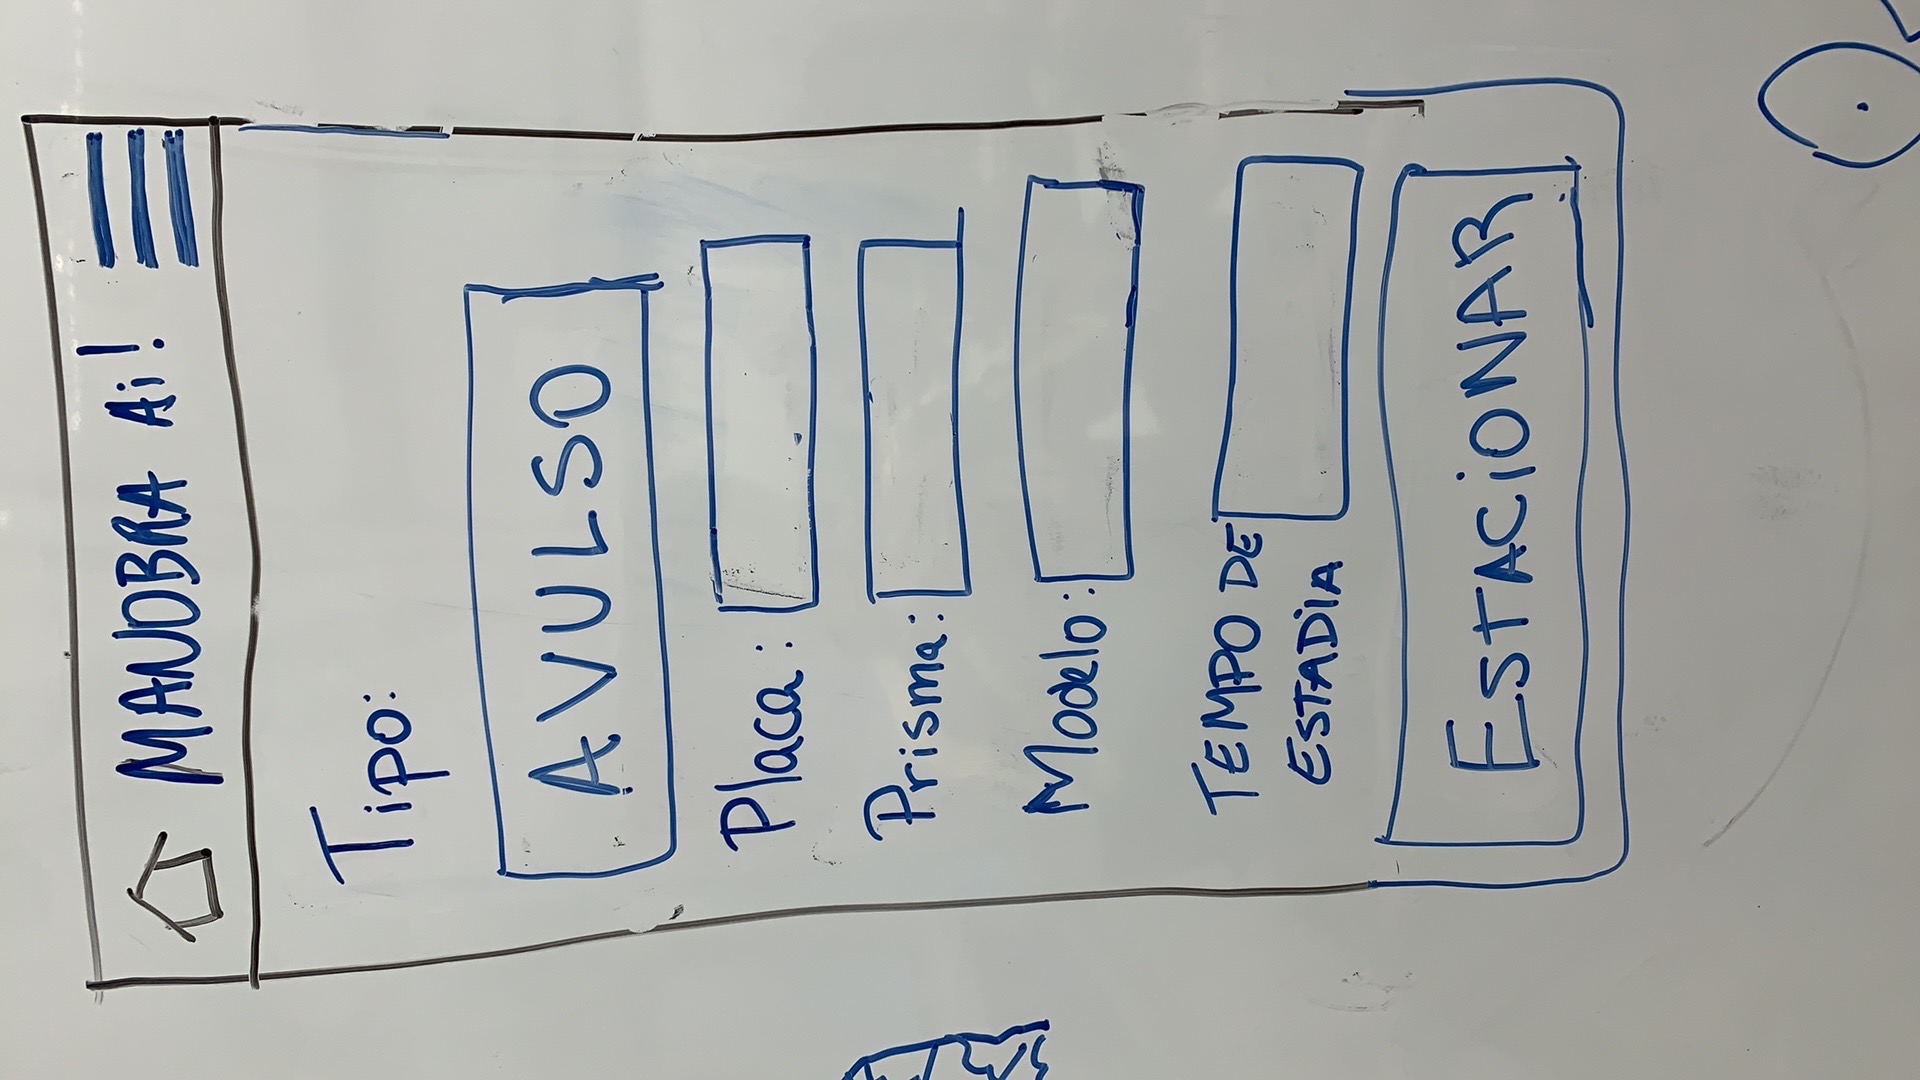 MANOBRA Ai!
Tipo:
AVULSO
Placa:
Prisma:
Modelo:
TEMPO DE
ESTADiA
ESTACiONAR